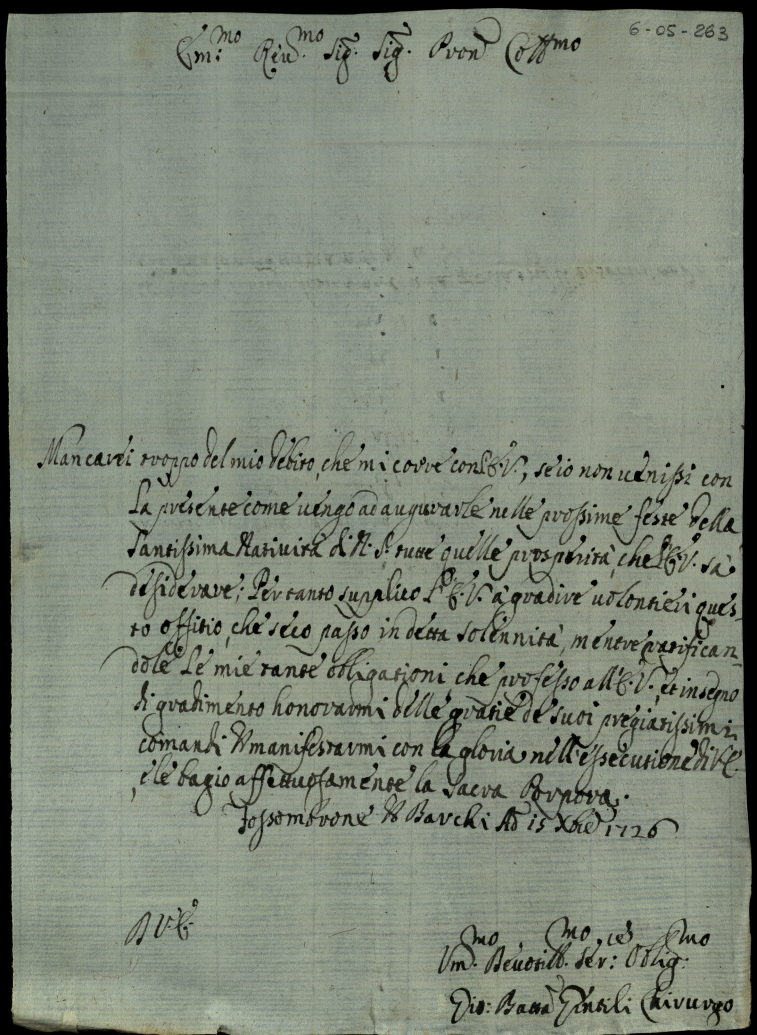 6-05-263
Em:mo Reu.mo Sig.r Sig.r Pron Collmo
Mancarei troppo del mio debito, che mi corre con l'E.V., se io non uenissi con
la presente come uengo ad augurarle nelle prossime feste della
Santissima Natiuità di N. S. tutte quelle prosperità, che l'E.V. sà
desiderare; Per tanto supplico l'E.V. à gradire uolontieri ques-
to offitio, che seco passo in detta solennità, mentre ratifican-
dole le mie tante obligationi che professo all'E.V., et in segno
di gradimento honorarmi delle gratie de suoi pregiatissimi
comandi manifestarmi con la gloria nell'essecutione di V.E.
e le bagio affettuosamente la Sacra Porpora.
Fossombrone Barchi Ad 15 Xbre 1726
D V.E.
Um.mo Deuotiss.mo Ser: Oblig:mo
Gio: Batta Gentili Chirurgo